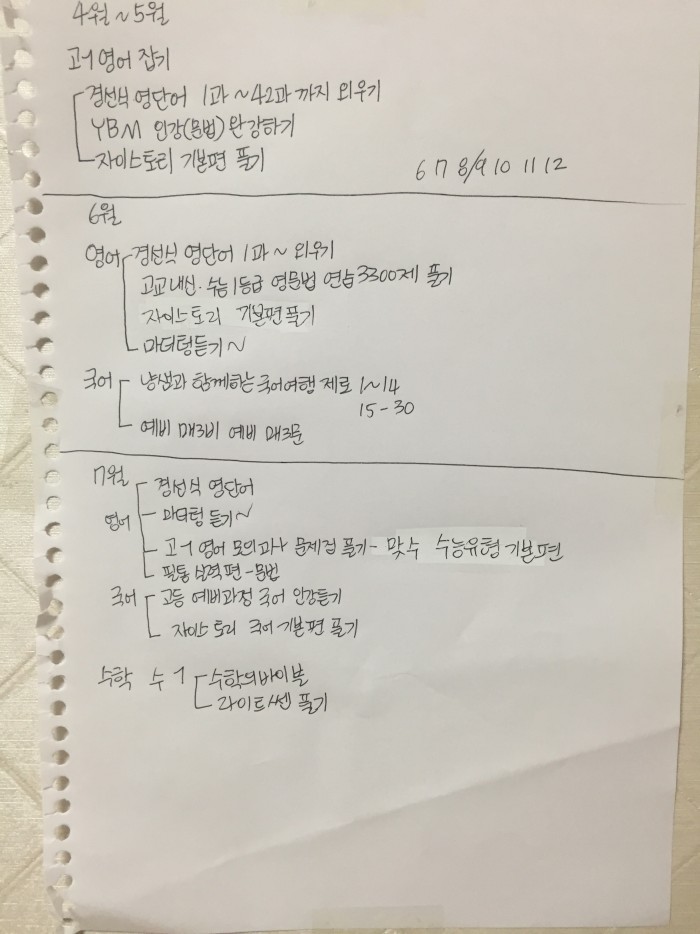 4월 ~ 5월
고1 영어 잡기
경선식 영단어 1과 ~ 42과 까지 외우기
YBM 인강(문법) 완강하기
자이스토리 기본편 풀기
6 7 8/9 10 11 12
6월
영어 경선식 영단어 1과 ~ 외우기
고교내신·수능1등급 영문법 연습 3300제 풀기
자이스토리 기본편 풀기
마더텅듣기~
국어 냥샘과 함께하는 국어여행 제로 1~14
15-30
예비 매3비 예비 매3문
7월
경선식 영단어
영어 마더텅 듣기~
고1 영어 모의고사 문제집 풀기 - 맞수 수능유형 기본편
필통 실력편 - 문법
국어 고등 예비과정 국어 인강듣기
자이스토리 국어 기본편 풀기
수학 수1 수학의바이블
라이트쎈 풀기